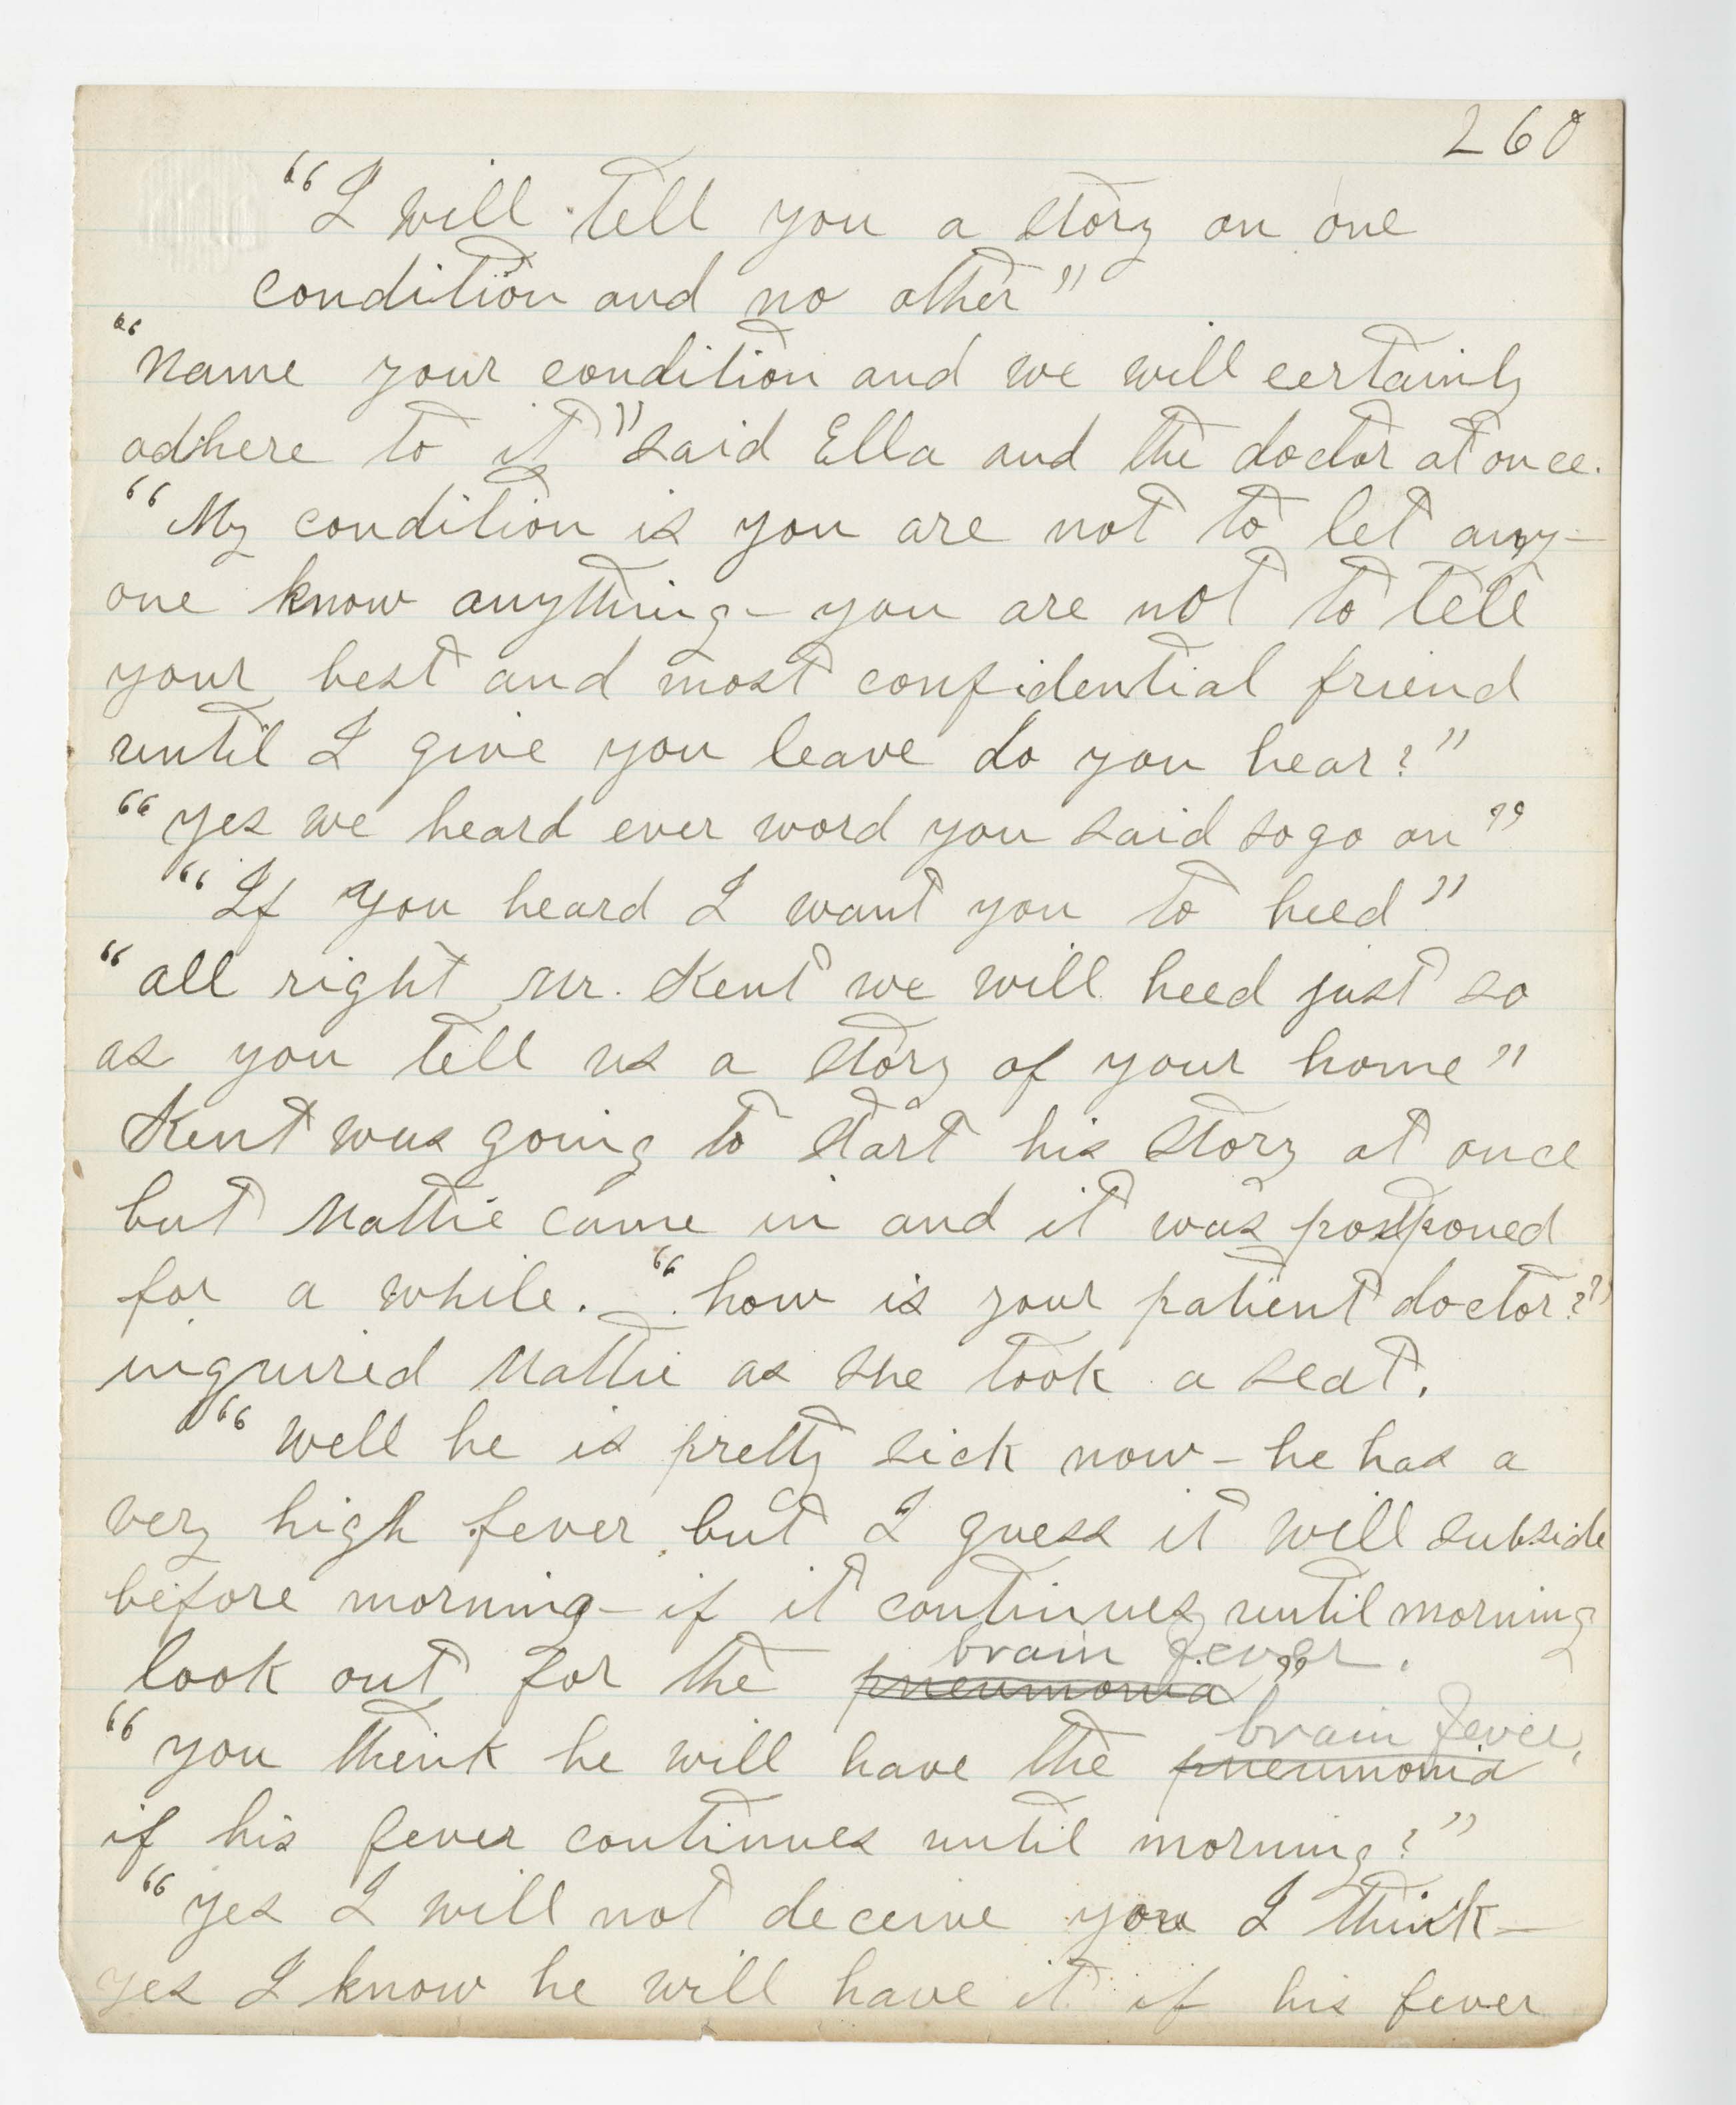 260
"I will tell you a story on one
condition and no other"
"Name your condition and we will certainly
adhere to it" said Ella and the doctor at once.
"My condition is you are not to let any-
one know anything - you are not to tell
your best and most confidential friend
until I give you leave do you hear?"
"yes we heard ever word you said so go on"
"If you heard I want you to heed"
"all right Mr. Kent we will heed just so
as you tell us a story of your home"
Kent was going to start his story at once
but Mattie came in and it was postponed
for a while. - "how is your patient doctor?"
inquired Mattie as she took a seat.
"well he is pretty sick now - he has a
very high fever but I guess it will subside
before morning - if it continues until morning
brain fever.
look out for the pneumonia"
brain fever,
"you think he will have the pneumonia
if his fever continues until morning?"
"yes I will not deceive you I think -
yes I know he will have it if his fever